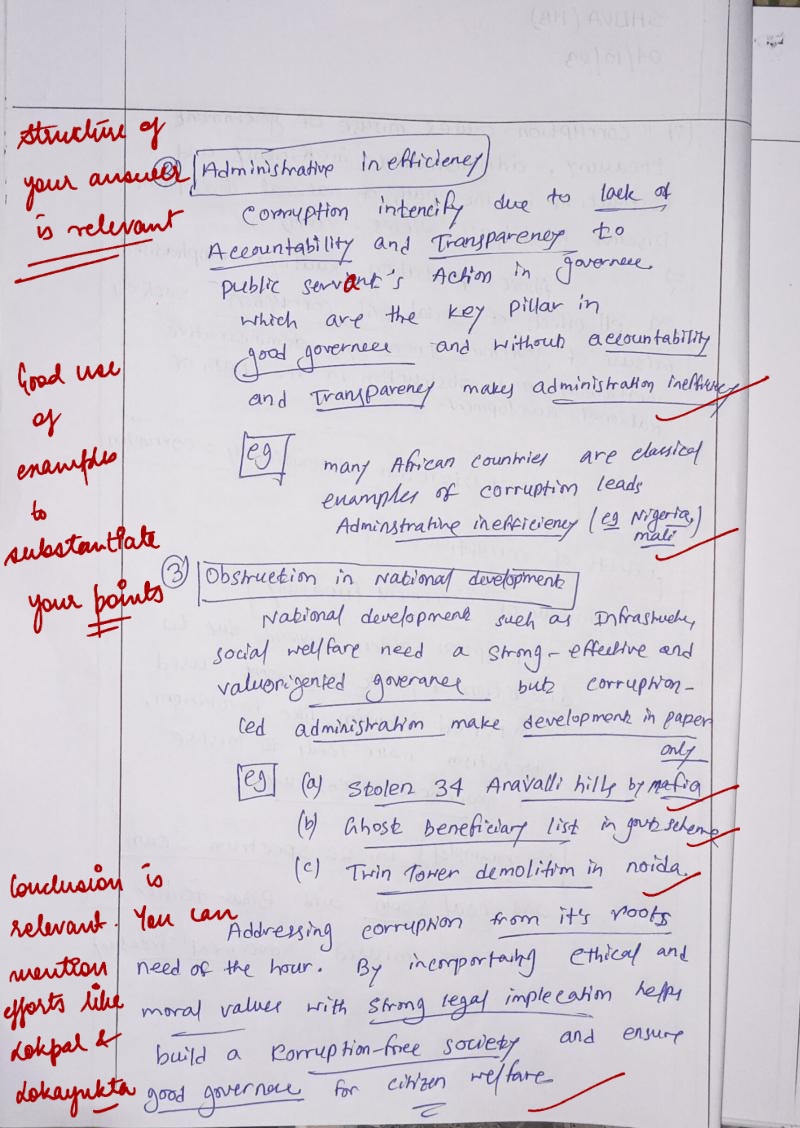 Structure of
your answer
is relevant
② Administrative inefficiency
Corruption intencify due to lack of
Accountability and Transparency to
public servant's Action in governece
which are the key pillar in
good governece and without accountability
and Transparency makes administration inefficiency
Good use
of
examples
to
substantiate
your points
eg many African countries are classical
examples of corruption leads
Adminstrative inefficiency (eg Nigeria,)
mali
③ Obstruction in National development
National development such as
social welfare need a strong-effective and
valuorigented goverance but corruption-
led administration make development in paper
only
eg (a) Stolen 34 Aravalli hills by mafia
(b) Ghost beneficiary list in govt scheme
(c) Twin Tower demolition in noida.
Conclusion is
relevant. You can
mention
efforts like
Lokpal &
Lokayukta
Addressing corruption from it's roots
need of the hour. By incorportaing ethical and
moral values with strong legal implecation helps
build a korruption-free society and ensure
good governece for citizen welfare